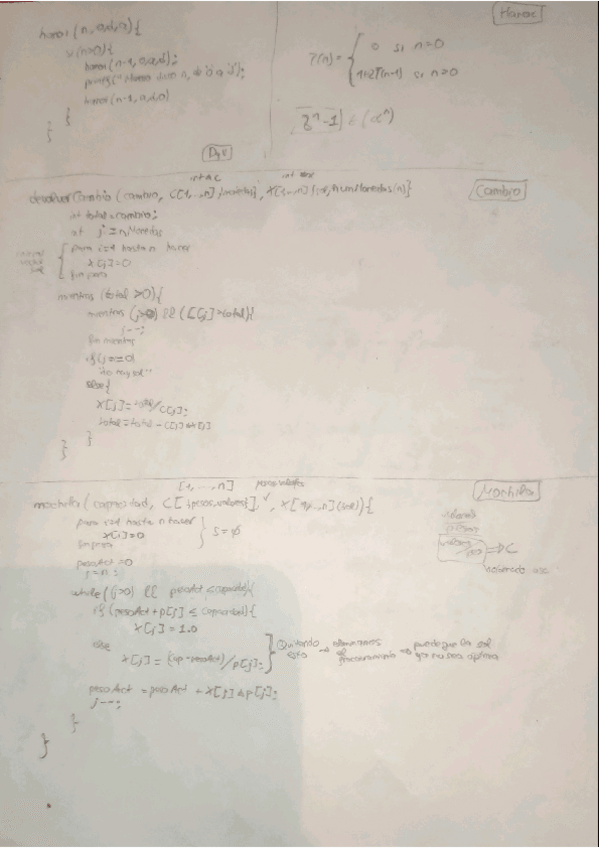 Hanoi
hanoi (n, o, d, a) {
if (n>0) {
hanoi (n-1, o, a, d);
hanoi (n-1, a, d, o)
}
}
T(n) = { 0 si n=0
1+2T(n-1) si n>0
2^n - 1 ∈
DyV
Cambio
int n c
devolverCambio (cambio, C[1,...,n] X[1,...,n] {sol}, numMonedas(n)}
int total = cambio;
int j = nMonedas
para i=1 hasta n hacer
X[i]=0
fin para
mientras (total >0) {
mientras (j>0) && (C[j]>total){
j--;
fin mientras
if (j==0)
"no hay sol"
else {
X[j] = total/C[j];
total = total - C[j] * X[j]
}
}
Mochila
[1,...,n]
mochila (capacidad, C[{pesos, valores}], X[1,...,n](sol)) {
para i=1 hasta n hacer
X[i]=0
fin para
S = ∅
pesoAct = 0
j = n;
while (j>0) && pesoAct ≤ capacidad {
if (pesoAct + p[j] ≤ capacidad) {
X[j] = 1.0
else
X[j] = (cap - pesoAct)/p[j];
Quitando esto → eliminamos el fraccionamiento → puede que la sol ya no sea óptima
pesoAct = pesoAct + X[j] * p[j];
j--;
}
}
valores
pesos
valores/pesos ⇒ C